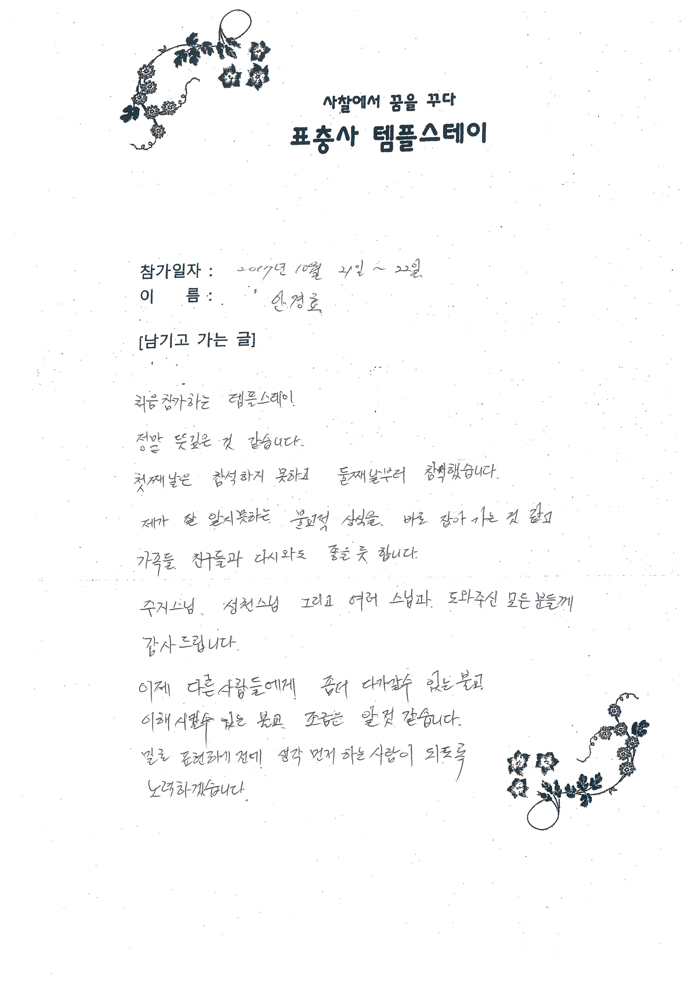 사찰에서 꿈을 꾸다
표충사 템플스테이
참가일자 : 2017년 10월 21일 ~ 22일
이 름 : 안경효
[남기고 가는 글]
처음 참가하는 템플스테이
정말 뜻깊은 것 같습니다.
첫째날은 참석하지 못하고 둘째날부터 참석했습니다.
제가 잘 알지못하는 불교적 상식을 바로 잡아 가는 것 같고
가족들 친구들과 다시와도 좋을 듯 합니다.
주지스님, 성천스님 그리고 여러 스님과 도와주신 모든 분들께
감사드립니다.
이제 다른사람들에게 좀더 다가갈수 있는 불교
이해시킬수 있는 불교 조금은 알것 같습니다.
말로 표현하기전에 생각 먼저 하는 사람이 되도록
노력하겠습니다.